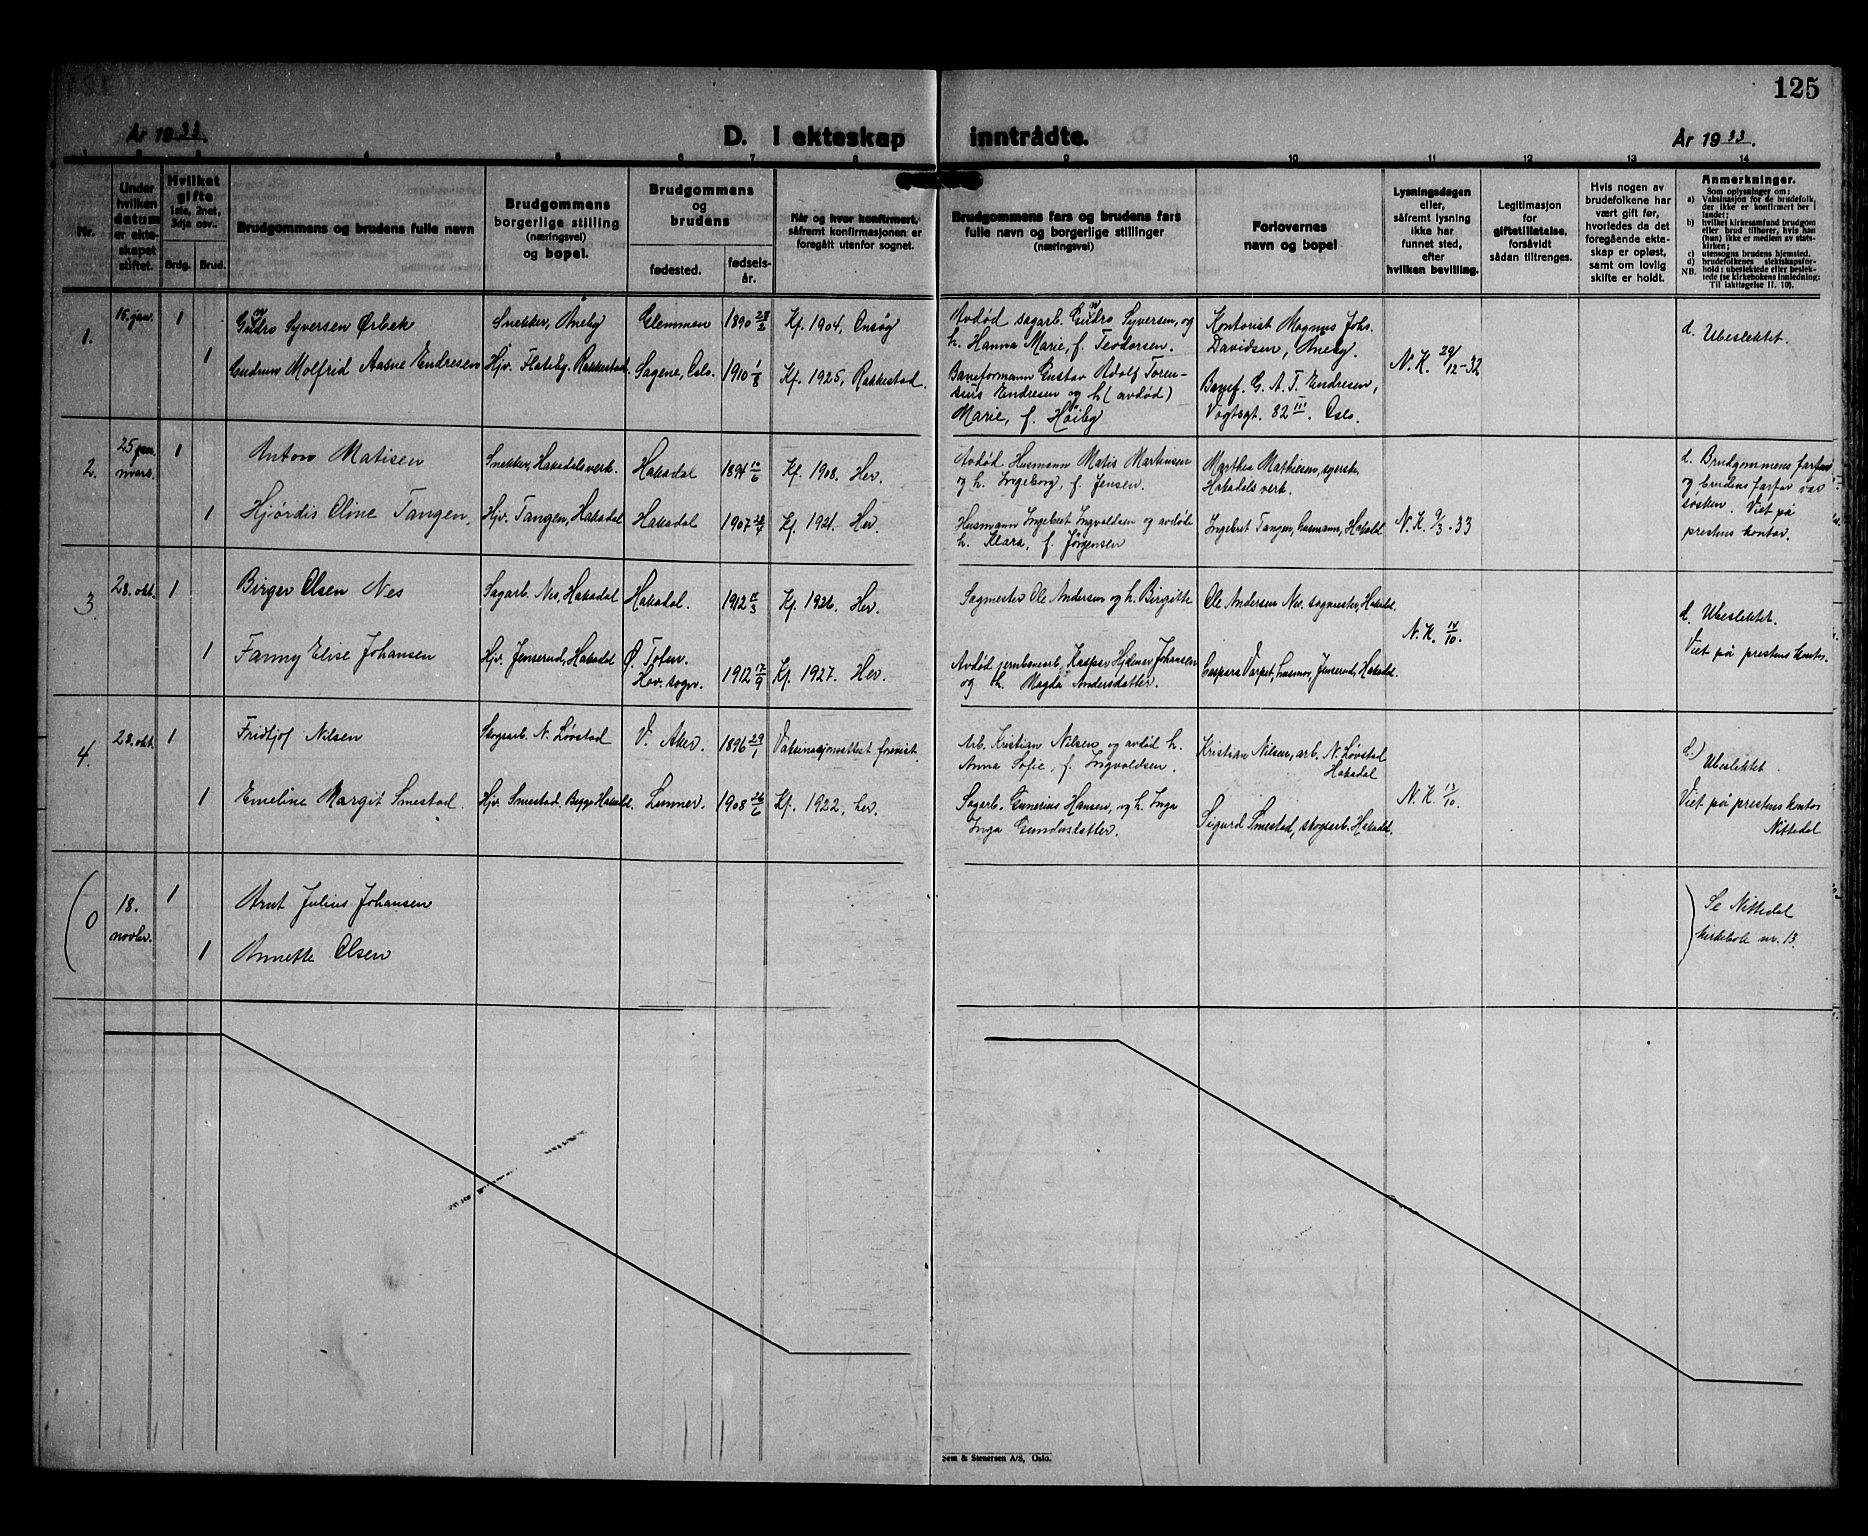 125
År 1933.
D. I ekteskap inntrådte.
År 1933.
1 2 3 4 5 6 7 8 9 10 11 12 13 14
Nr.
Under
hvilken
datum
er ekte-
skapet
stiftet.
Hvilket
gifte
1ste, 2net,
3dje osv..
Brdg. Brud.
Brudgommens og brudens fulle navn
Brudgommens
borgerlige stilling
(næringsvei)
og bopel.
Brudgommens
og
brudens
fødested.
fødsels-
år.
Når og hvor konfirmert,
såfremt konfirmasjonen er
foregått utenfor sognet.
Brudgommens fars og brudens fars
fulle navn og borgerlige stillinger
(næringsvei)
Forlovernes
navn og bopel
Lysningsdagen
eller,
såfremt lysning
ikke har
funnet sted,
efter
hvilken bevilling.
Legitimasjon
for
giftstillatelse,
forsåvidt
sådan tiltrenges.
Hvis nogen av
brudefolkene har
vært gift før,
hvorledes da det
foregående ekte-
skap er opløst,
samt om lovlig
skifte er holdt.
Anmerkninger.
Som oplysninger om:
a) Vaksinasjon for de brudefolk,
der ikke er konfirmert her i
landet;
b) hvilket kirkesamfund brudgom
eller brud tilhører, hvis han
(hun) ikke er medlem av stats-
kirken;
c) utensogns brudens hjemsted.
d) brudefolkenes slektskapsfor-
NB. hold: ubeslektede eller beslek-
tede (se kirkebokens innledning:
Til iakttagelse II. 10).
1.
15. jan.
1
Gundro Syversen Ørbek
Snekker, Åneby
Glemmen
1890 28/2
Kf. 1904, Onsøy
Avdød sagarb. Gundro Syversen, og
h. Hanna Marie, f. Teodorsen.
Kontorist Magnus Johs.
Davidsen, Åneby.
N. K. 29/12-32
d. Ubeslektet.
1
Gudrun Molfrid Aasne Endresen
Hjv. Flateby, Rakkestad.
Sagene, Oslo.
1910 1/8
Kf. 1925, Rakkestad.
Baneformann Gustav Adolf Toren-
sius Endresen og h (avdød)
Marie, f. Høiby
Banef. G. A. T. Endresen,
Vogtsgt. 82 III. Oslo.
2.
25 jan.
mars.
1
Anton Matisen
Snekker, Hakadals verk.
Hakadal
1894 10/6
Kf. 1908. Her.
Avdød Husmann Matis Martinsen
og h. Ingeborg, f. Jensen.
Marthea Mathiesen, syerske
Hakadals verk.
d. Brudgommens farfar
og brudens farfar var
søsken. Viet på
prestens kontor.
1
Hjørdis Oline Tangen.
Hjv. Tangen, Hakadal
Hakadal
1907 28/4
Kf. 1921. Her
Husmann Ingebret Ingvaldsen og avdøde
h. Klara, f. Jørgensen
Ingebret Tangen, husmann, Hakadal
N. K. 9/3-33
3.
28. okt.
1
Birger Olsen Nes
Sagarb. Nes, Hakadal
Hakadal.
1912 11/3
Kf. 1926. Her.
Sagmester Ole Andersen og h. Birgitte
Ole Andersen Nes, sagmester, Hakadal.
N. K. 14/10.
d. Ubeslektet.
Viet på prestens kontor.
1
Fanny Elise Johansen
Hjv. Jenserud, Hakadal
Ø. Toten.
Hov. sogn.
1912 17/9
Kf. 1927. Her.
Avdød jernbanearb. Kaspar Hjelmer Johansen
og h. Magda Andersdatter.
Caspara Varpet, husmor, Jenserud, Hakadal.
4.
28. okt.
1
Fridtjof Nilsen
Skogsarb. N. Løvstad
V. Aker.
1896 29/1
Vaksinasjonsattest forevist.
Arb. Kristian Nilsen og avdød h.
Anna Sofie, f. Ingvoldsen.
Kristian Nilsen, arb. N. Løvstad
Hakadal
N. K. 13/10.
d.) Ubeslektet
Viet på prestens kontor
Nittedal
1
Emeline Margit Smestad.
Hjv. Smestad, Begge Hakadal.
Lunner.
1908 26/6
Kf. 1922, her.
Sagarb. Gunerius Hansen, og h. Inga
Inga Gundersdatter.
Sigurd Smestad, skogsarb. Hakadal.
(0
18.
novbr.
1
Arnt Julius Johansen
1
Annette Olsen
) Se Nittedal
kirkebok nr. 13.
Sem & Stenersen A/S, Oslo.